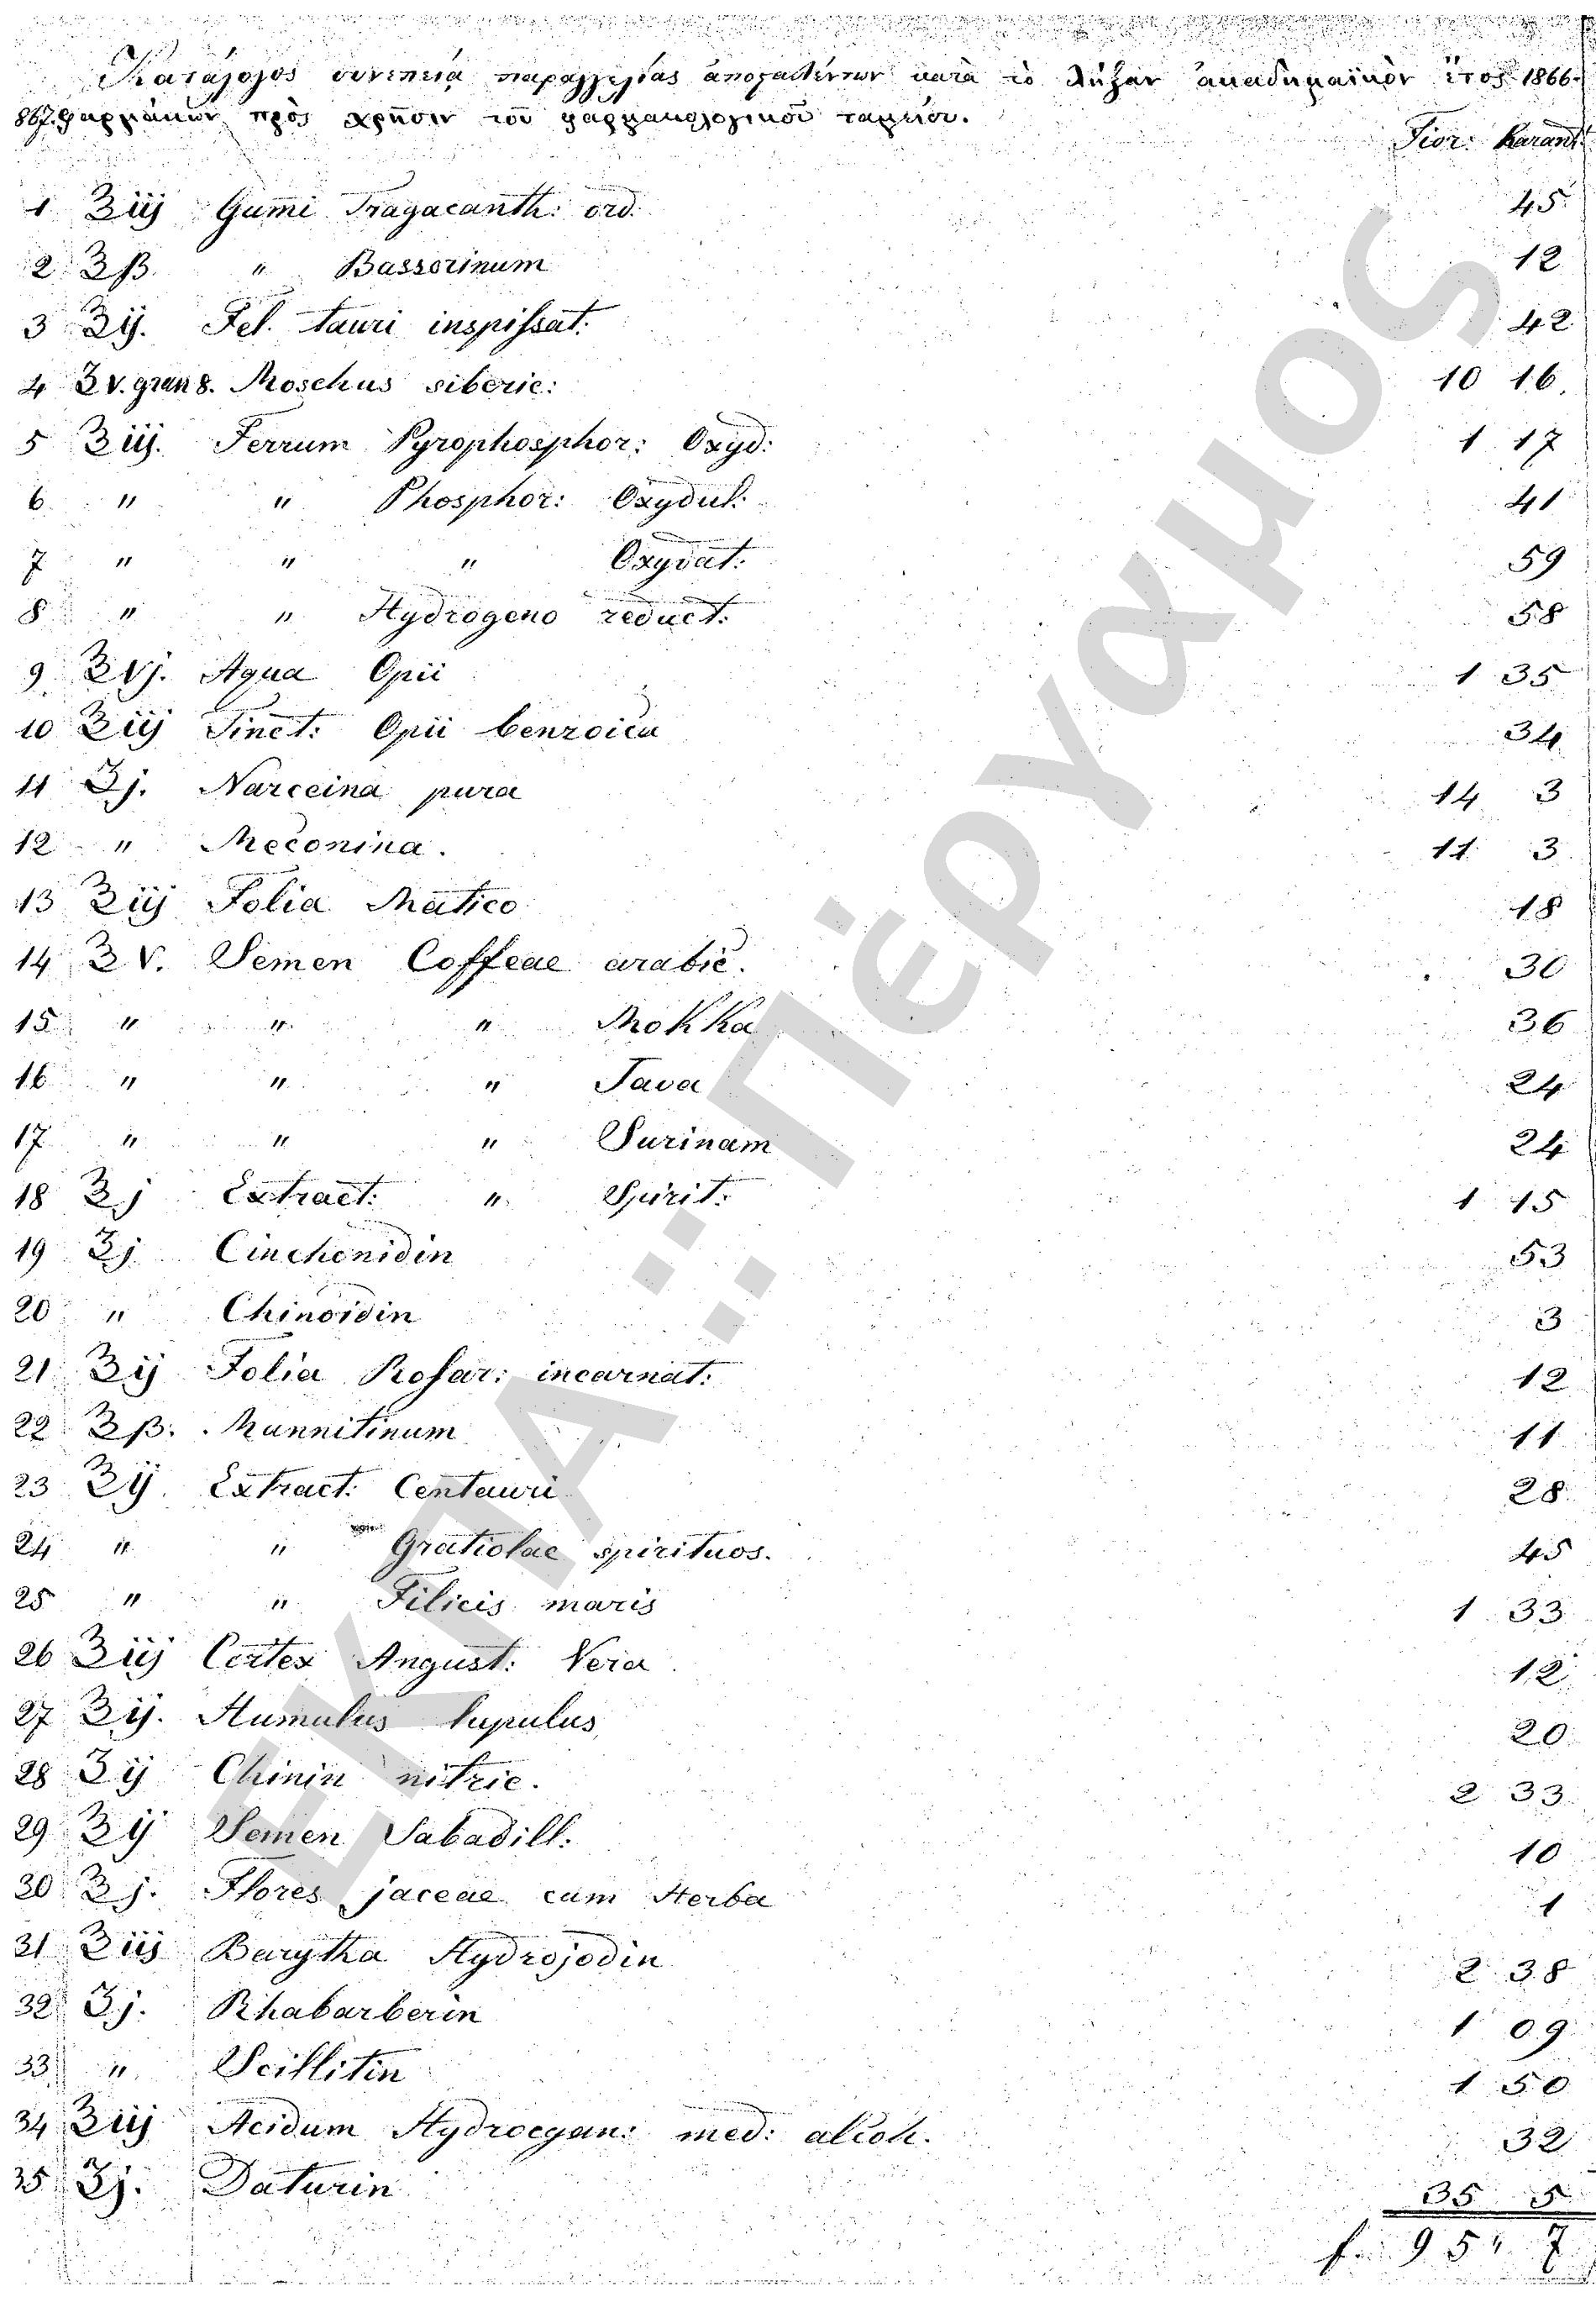 Κατάλογος συνεπείᾳ παραγγελίας ἀποσταλέντων κατὰ τὸ λῆξαν ἀκαδημαϊκὸν ἔτος 1866-
867. φαρμάκων πρὸς χρῆσιν τοῦ φαρμακολογικοῦ ταμείου.
Fior: Karant:
1 ℥iij Gumi Tragacanth: ord. 45
2 ℥ß. " Bassorinum 12
3 ℥ij. Fel. tauri inspissat: 42
4 ʒv. gran 8. Moschus siberic: 10 16
5 ℥iij. Ferrum Pyrophosphor: Oxyd: 1 17
6 " " Phosphor: Oxydul: 41
7 " " " Oxydat: 59
8 " " Hydrogeno reduct: 58
9 ℥vj. Aqua Opii 1 35
10 ℥iij Tinct: Opii benzoica 34
11 ʒj. Narceina pura 14 3
12 " Meconina. 11 3
13 ℥iij Folia Matico 18
14 ℥V. Semen Coffeae arabic. 30
15 " " " Mokka 36
16 " " " Java 24
17 " " " Surinam 24
18 ℥j Extract: " Spirit: 1 15
19 ʒj. Cinchonidin 53
20 " Chinoidin 3
21 ℥ij Folia Rosar: incarnat: 12
22 ℥ß. Mannitinum 11
23 ℥ij. Extract: Centauri 28
24 " " Gratiolae spirituos. 45
25 " " Filicis maris 1 33
26 ℥iij Cortex Angust: Vera 12
27 ℥ij. Humulus lupulus 20
28 ʒij Chinin nitric. 2 33
29 ℥ij Semen Sabadill: 10
30 ℥j. Flores jaceae cum Herba 1
31 ℥iij Barytha Hydrojodin 2 38
32 ʒj. Rhabarberin 1 09
33 " Scillitin 1 50
34 ℥iij Acidum Hydrocyan: med: alcoh. 32
35 ʒj. Daturin 35 5
f. 95 " 7
ΕΚΠΑ :: Πέργαμος